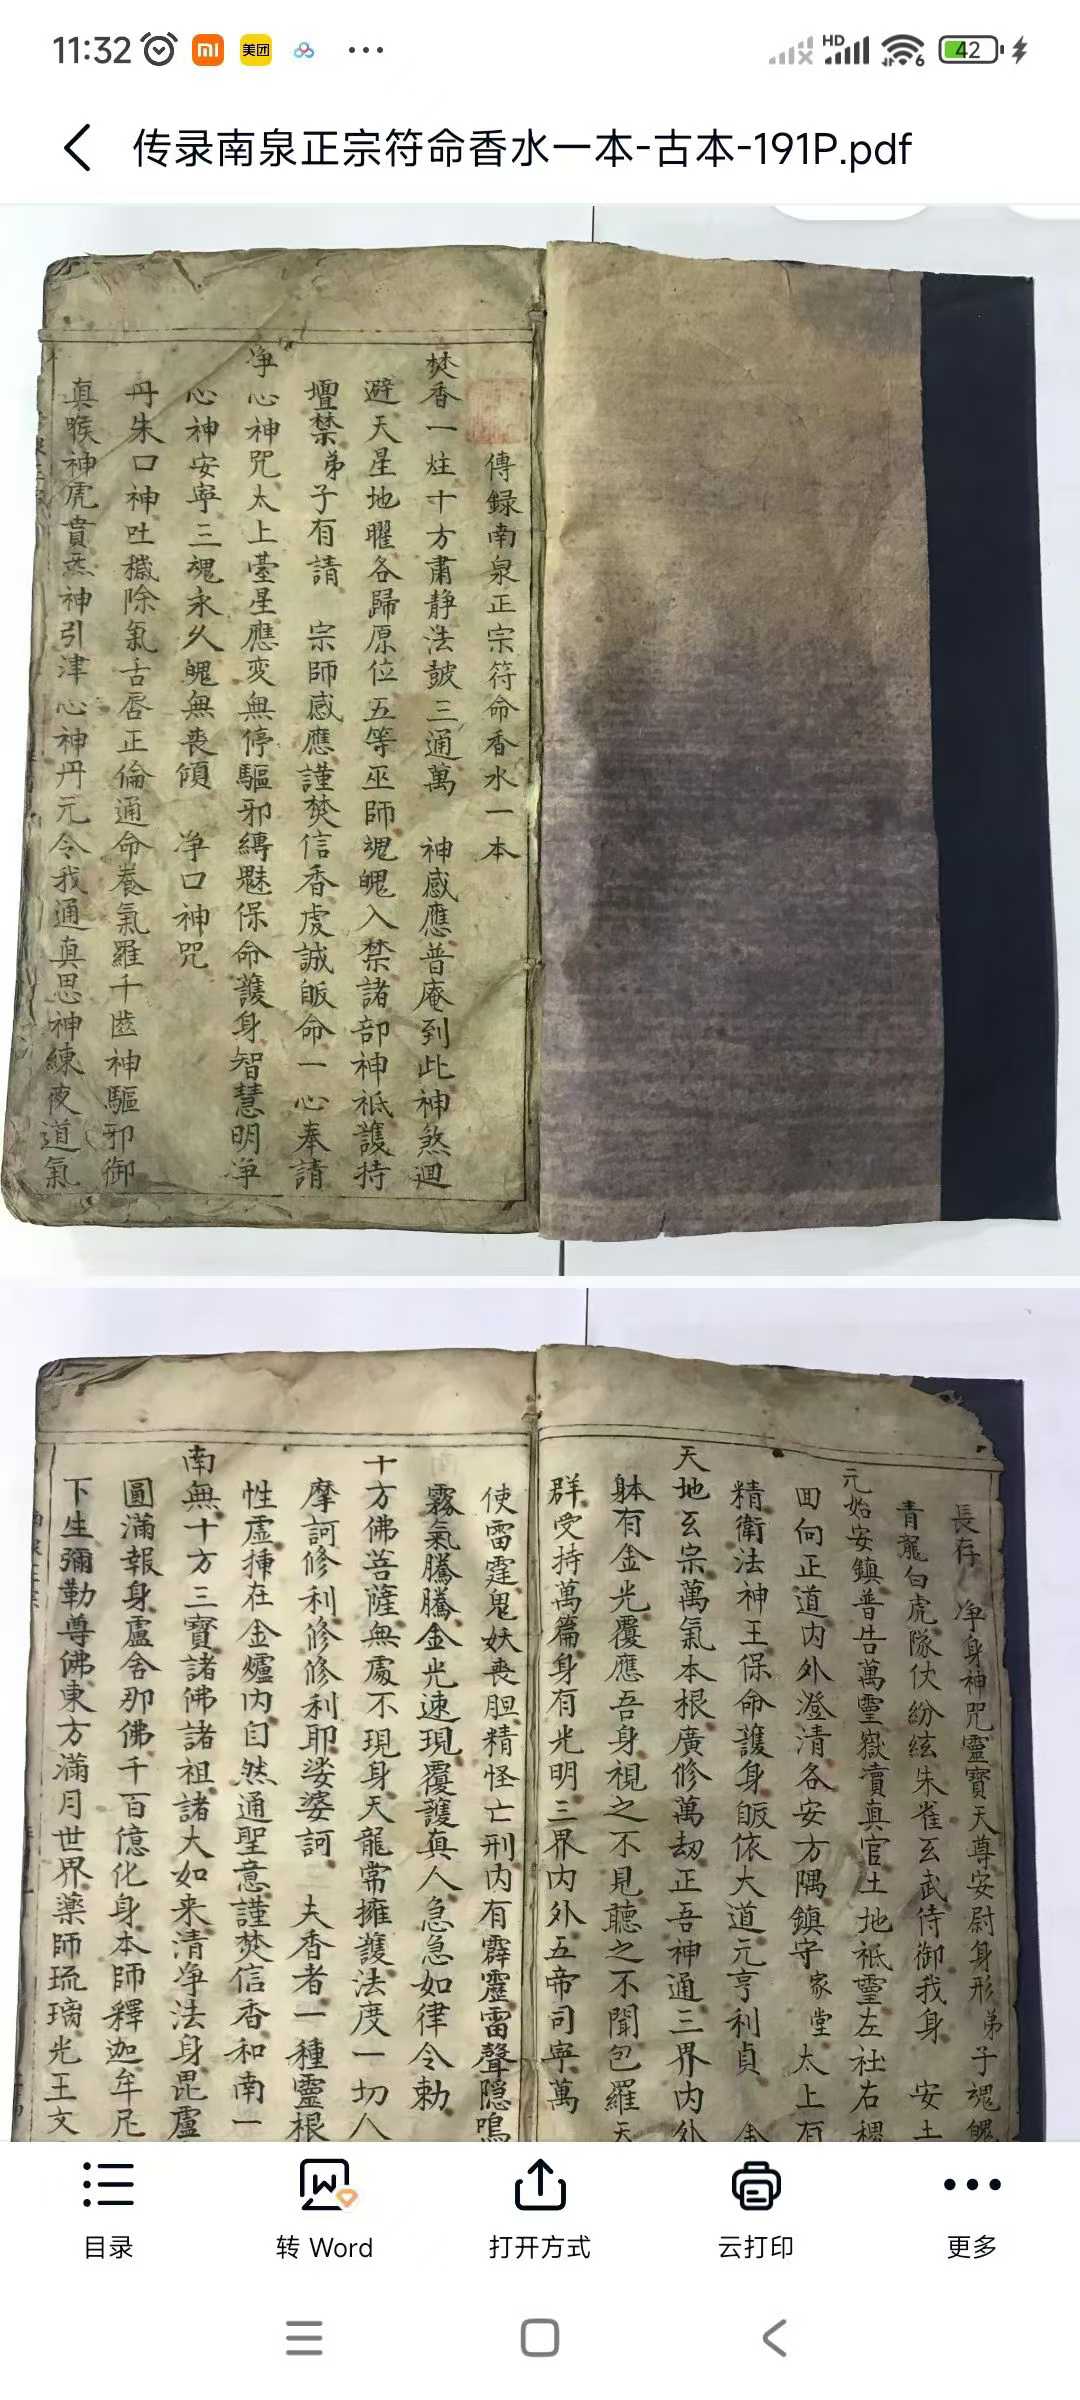 11:32
美团
HD
6
42
传录南泉正宗符命香水一本-古本-191P.pdf
傳録南泉正宗符命香水一本
焚香一炷十方肅静法皷三通萬 神感應普庵到此神煞迴
避天星地曜各歸原位五等巫師魂魄入禁諸部神祇護持
壇禁弟子有請 宗師感應謹焚信香虔誠皈命一心奉請
净心神咒太上臺星應変無停驅邪縛魅保命護身智慧明净
心神安寧三魂永久魄無喪傾 净口神咒
丹朱口神吐穢除氣舌唇正倫通命養氣羅千齒神驅邪御
真喉神虎賁炁神引津心神丹元令我通真思神練夜道氣
長存 净身神咒靈寶天尊安尉身形弟子魂魄
青龍白虎隊仗紛紜朱雀玄武侍御我身 安土
元始安鎮普告萬靈嶽瀆真官土地祇靈左社右稷
回向正道内外澄清各安方隅鎮守家堂太上有
精衛法神王保命護身皈依大道元亨利貞 金
天地玄宗萬氣本根廣修萬劫正吾神通三界内外
躰有金光覆應吾身視之不見聽之不聞包羅天
群受持萬篇身有光明三界内外五帝司寧萬
使雷霆鬼妖喪胆精怪亡形内有霹靂雷聲隠鳴
霧氣騰騰金光速現覆護真人急急如律令勅
十方佛菩薩無處不現身天龍常擁護法度一切人
摩訶修利修修利耶娑婆訶 夫香者一種靈根
性虛揷在金爐内自然通聖意謹焚信香和南一
南無十方三寶諸佛諸祖諸大如来清净法身毘盧
圓滿報身盧舍那佛千百億化身本師釋迦牟尼
下生彌勒尊佛東方滿月世界藥師琉璃光王文
目录
转 Word
打开方式
云打印
更多